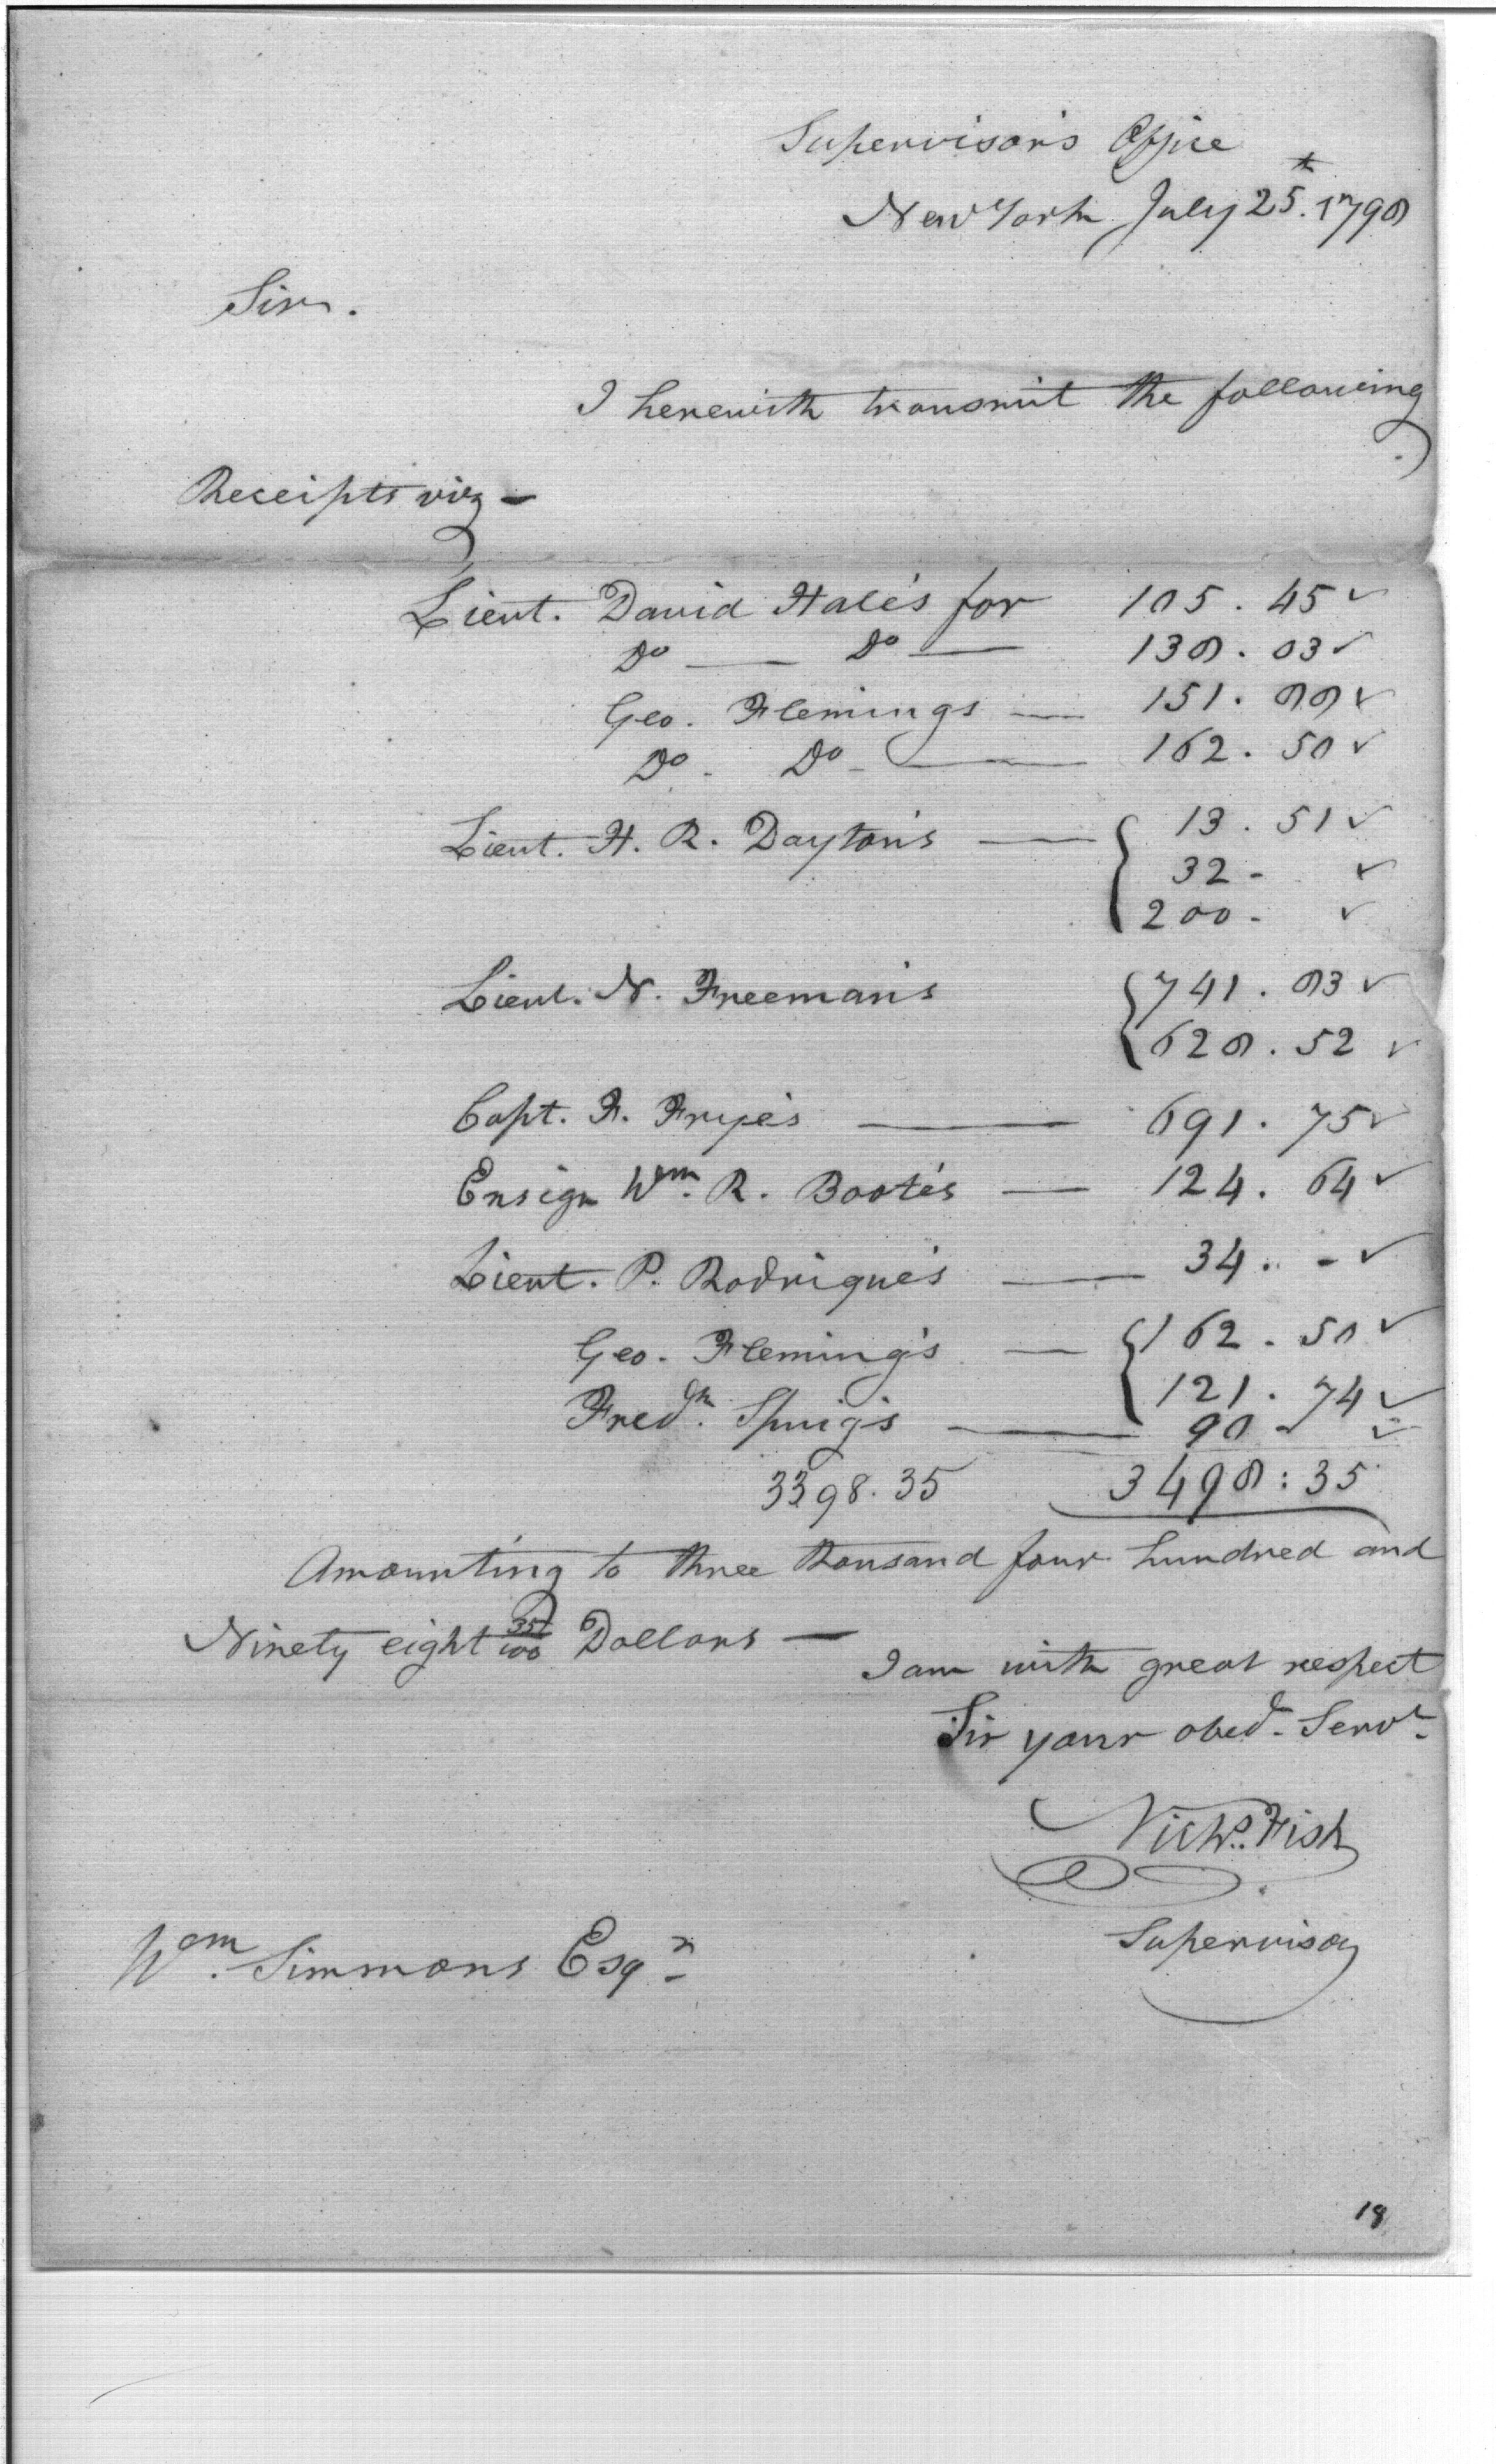 Supervisor's Office
New York July 25th. 1798
Sir.
I herewith transmit the following
Receipts viz -
Lieut. David Hale's for 105. 45 ✓
Do — Do — 138. 03 ✓
Geo. Flemings — 151. 88 ✓
Do. Do - — 162. 50 ✓
Lieut. H. R. Dayton's — { 13. 51 ✓
32 - ✓
200 - ✓
Lieut. N. Freeman's { 741. 83 ✓
628. 52 ✓
Capt. F. Frye's — 691. 75 ✓
Ensign Wm. R. Boote's — 124. 64 ✓
Lieut. P. Rodrigue's — 34. - ✓
Geo. Fleming's — { 162. 50 ✓
121. 74 ✓
Fredk. Sprig's — 90 - ✓
3398. 35 3498 : 35
Amounting to three thousand four hundred and
Ninety eight 35/100 Dollars —
I am with great respect
Sir your obed. Servt.
Nichs. Fish
Supervisor
Wm. Simmons Esqr.
18